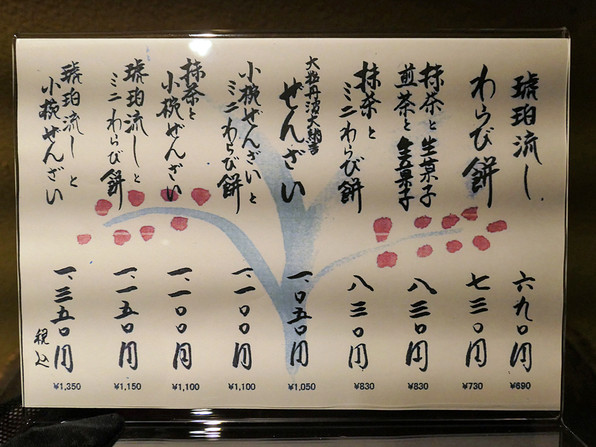 琥珀流し
六九〇円
¥690
わらび餅
七三〇円
¥730
抹茶と生菓子
煎茶と生菓子
八三〇円
¥830
抹茶と
ミニわらび餅
八三〇円
¥830
大粒丹波大納言
ぜんざい
一、〇五〇円
¥1,050
小椀ぜんざいと
ミニわらび餅
一、一〇〇円
¥1,100
抹茶と
小椀ぜんざい
一、一〇〇円
¥1,100
琥珀流しと
ミニわらび餅
一、一五〇円
¥1,150
琥珀流しと
小椀ぜんざい
一、三五〇円
¥1,350
税込